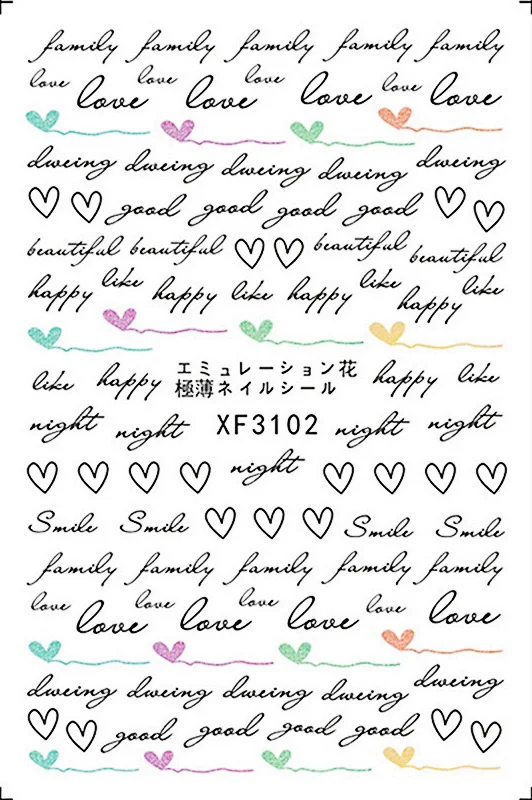 family family family family family
love love love
love love love love love
dweing dweing dweing dweing dweing
good good good good
beautiful beautiful beautiful beautiful
happy like happy like happy like happy like
like happy エミュレーション花 happy like
極薄ネイルシール
night night XF3102 night night
night
Smile Smile Smile Smile
family family family family family
love love love love
love love love love love
dweing dweing dweing dweing dweing
good good good good